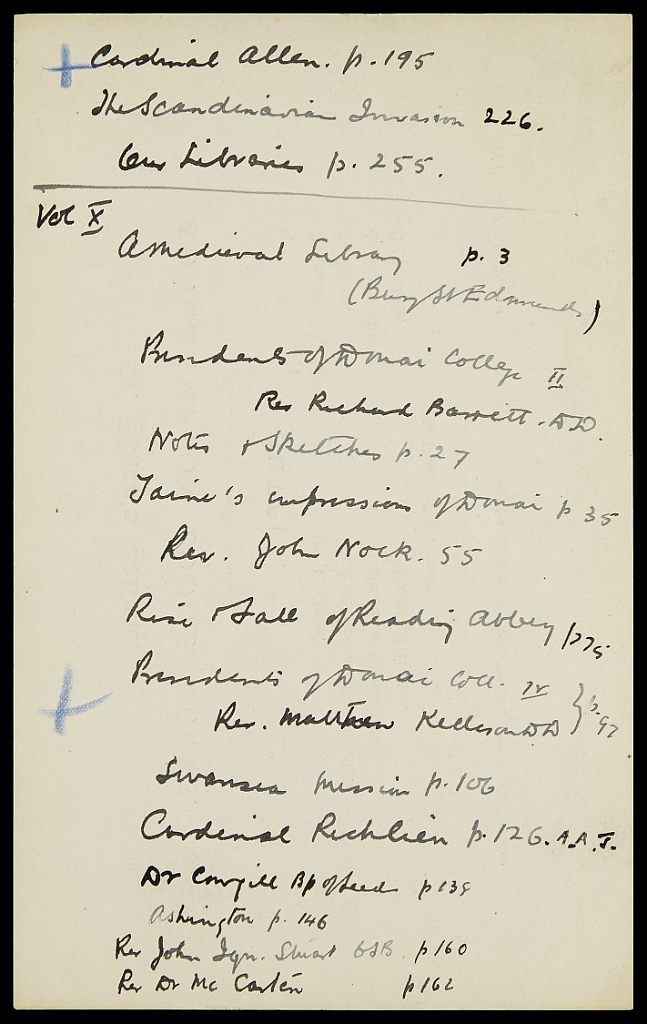 Cardinal Allen. p. 195
The Scandinavian Invasion 226.
Our Libraries p. 255.
Vol X
A Medieval Library p. 3
(Bury St Edmunds)
Presidents of Douai College II
Rev Richard Barrett. DD.
Notes & Sketches p. 27
Taine's impressions of Douai p 35
Rev. John Nock. 55
Rise & Fall of Reading Abbey p 75
Presidents of Douai Coll. IV
Rev. Matthew Kellison DD } p. 97
Swansea Mission p. 106
Cardinal Richlieu p. 126. A.A.J.
Dr Cowgill Bp of Leeds p 139
Ashington p. 146
Rev John Ign. Stuart OSB. p 160
Rev Dr Mc Carten p 162